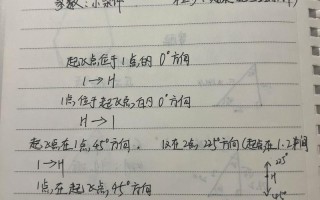 起飞点位于1点的0°方向
1→H
1点位于起飞点的0°方向
H→1
起飞点在1点,45°方向. 在2点,225°方向(起点在1.2中间
1→H
1点在起飞点,45°方向
225°
H
45°